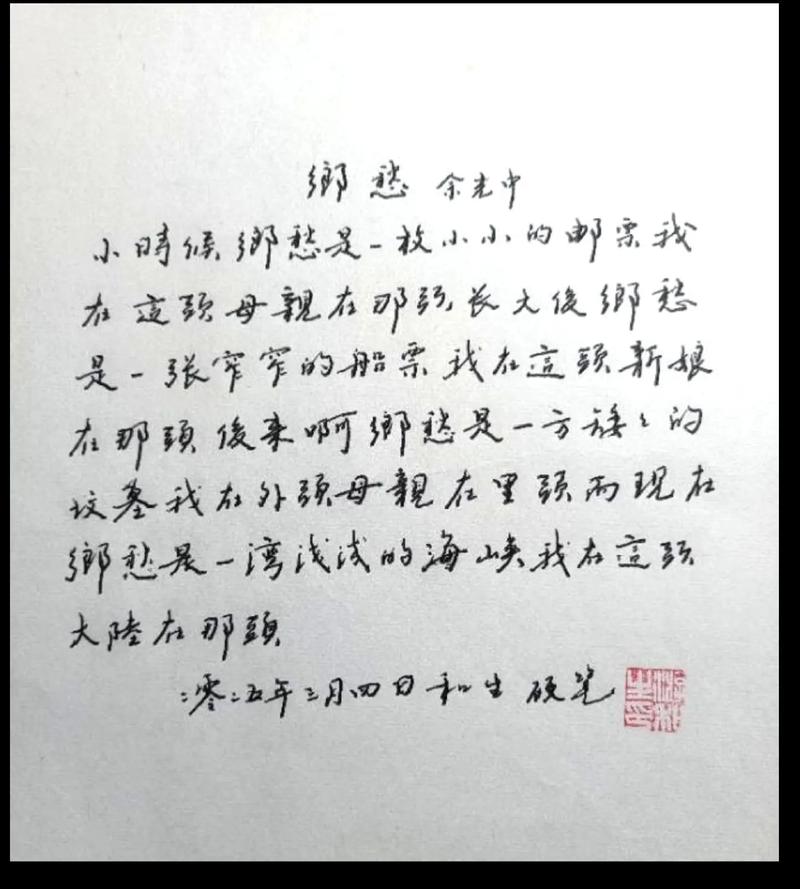 鄉愁 余光中
小時候鄉愁是一枚小小的邮票我
在這頭母親在那頭长大後鄉愁
是一張窄窄的船票我在這頭新娘
在那頭後来啊鄉愁是一方矮々的
坟墓我在外頭母親在里頭而現在
鄉愁是一湾浅浅的海峡我在這頭
大陸在那頭
二零二五年三月四日和生硬笔